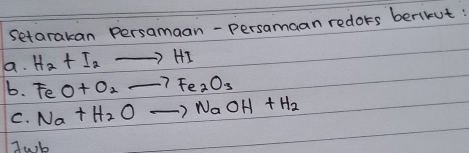 Setarakan Persamaan - Persamaan redoks berikut :
a. H₂ + I₂ → HI
b. FeO + O₂ → Fe₂O₃
c. Na + H₂O → NaOH + H₂
Jwb